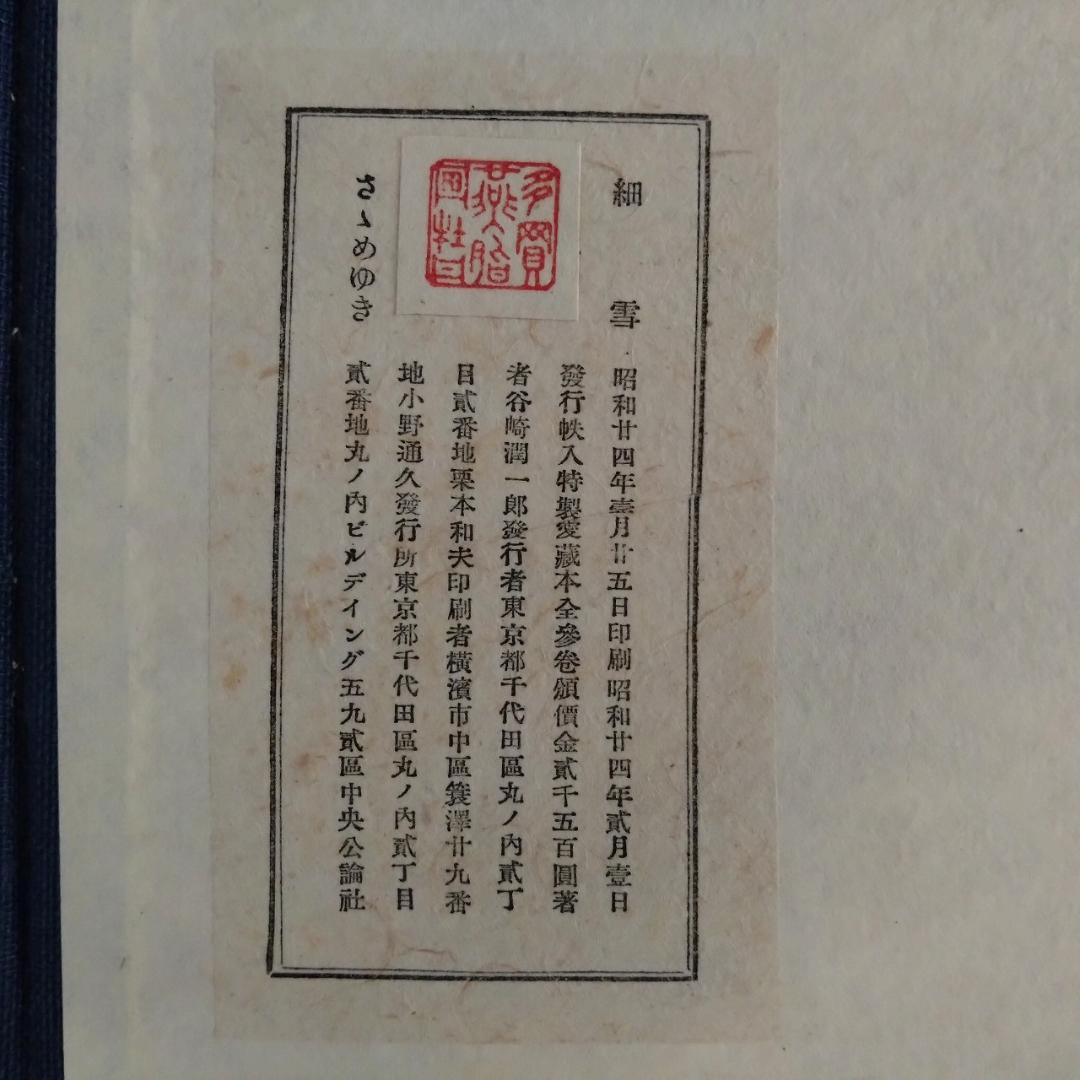 細雪
昭和廿四年壹月廿五日印刷昭和廿四年貳月壹日
發行帙入特製愛藏本全參卷頒價金貳千五百圓著
者谷崎潤一郎發行者東京都千代田區丸ノ內貳丁
目貳番地栗本和夫印刷者橫濱市中區簑澤廿九番
地小野通久發行所東京都千代田區丸ノ內貳丁目
貳番地丸ノ內ビルデイング五九貳區中央公論社
多買
燕脂
畫牡丹
さゝめゆき